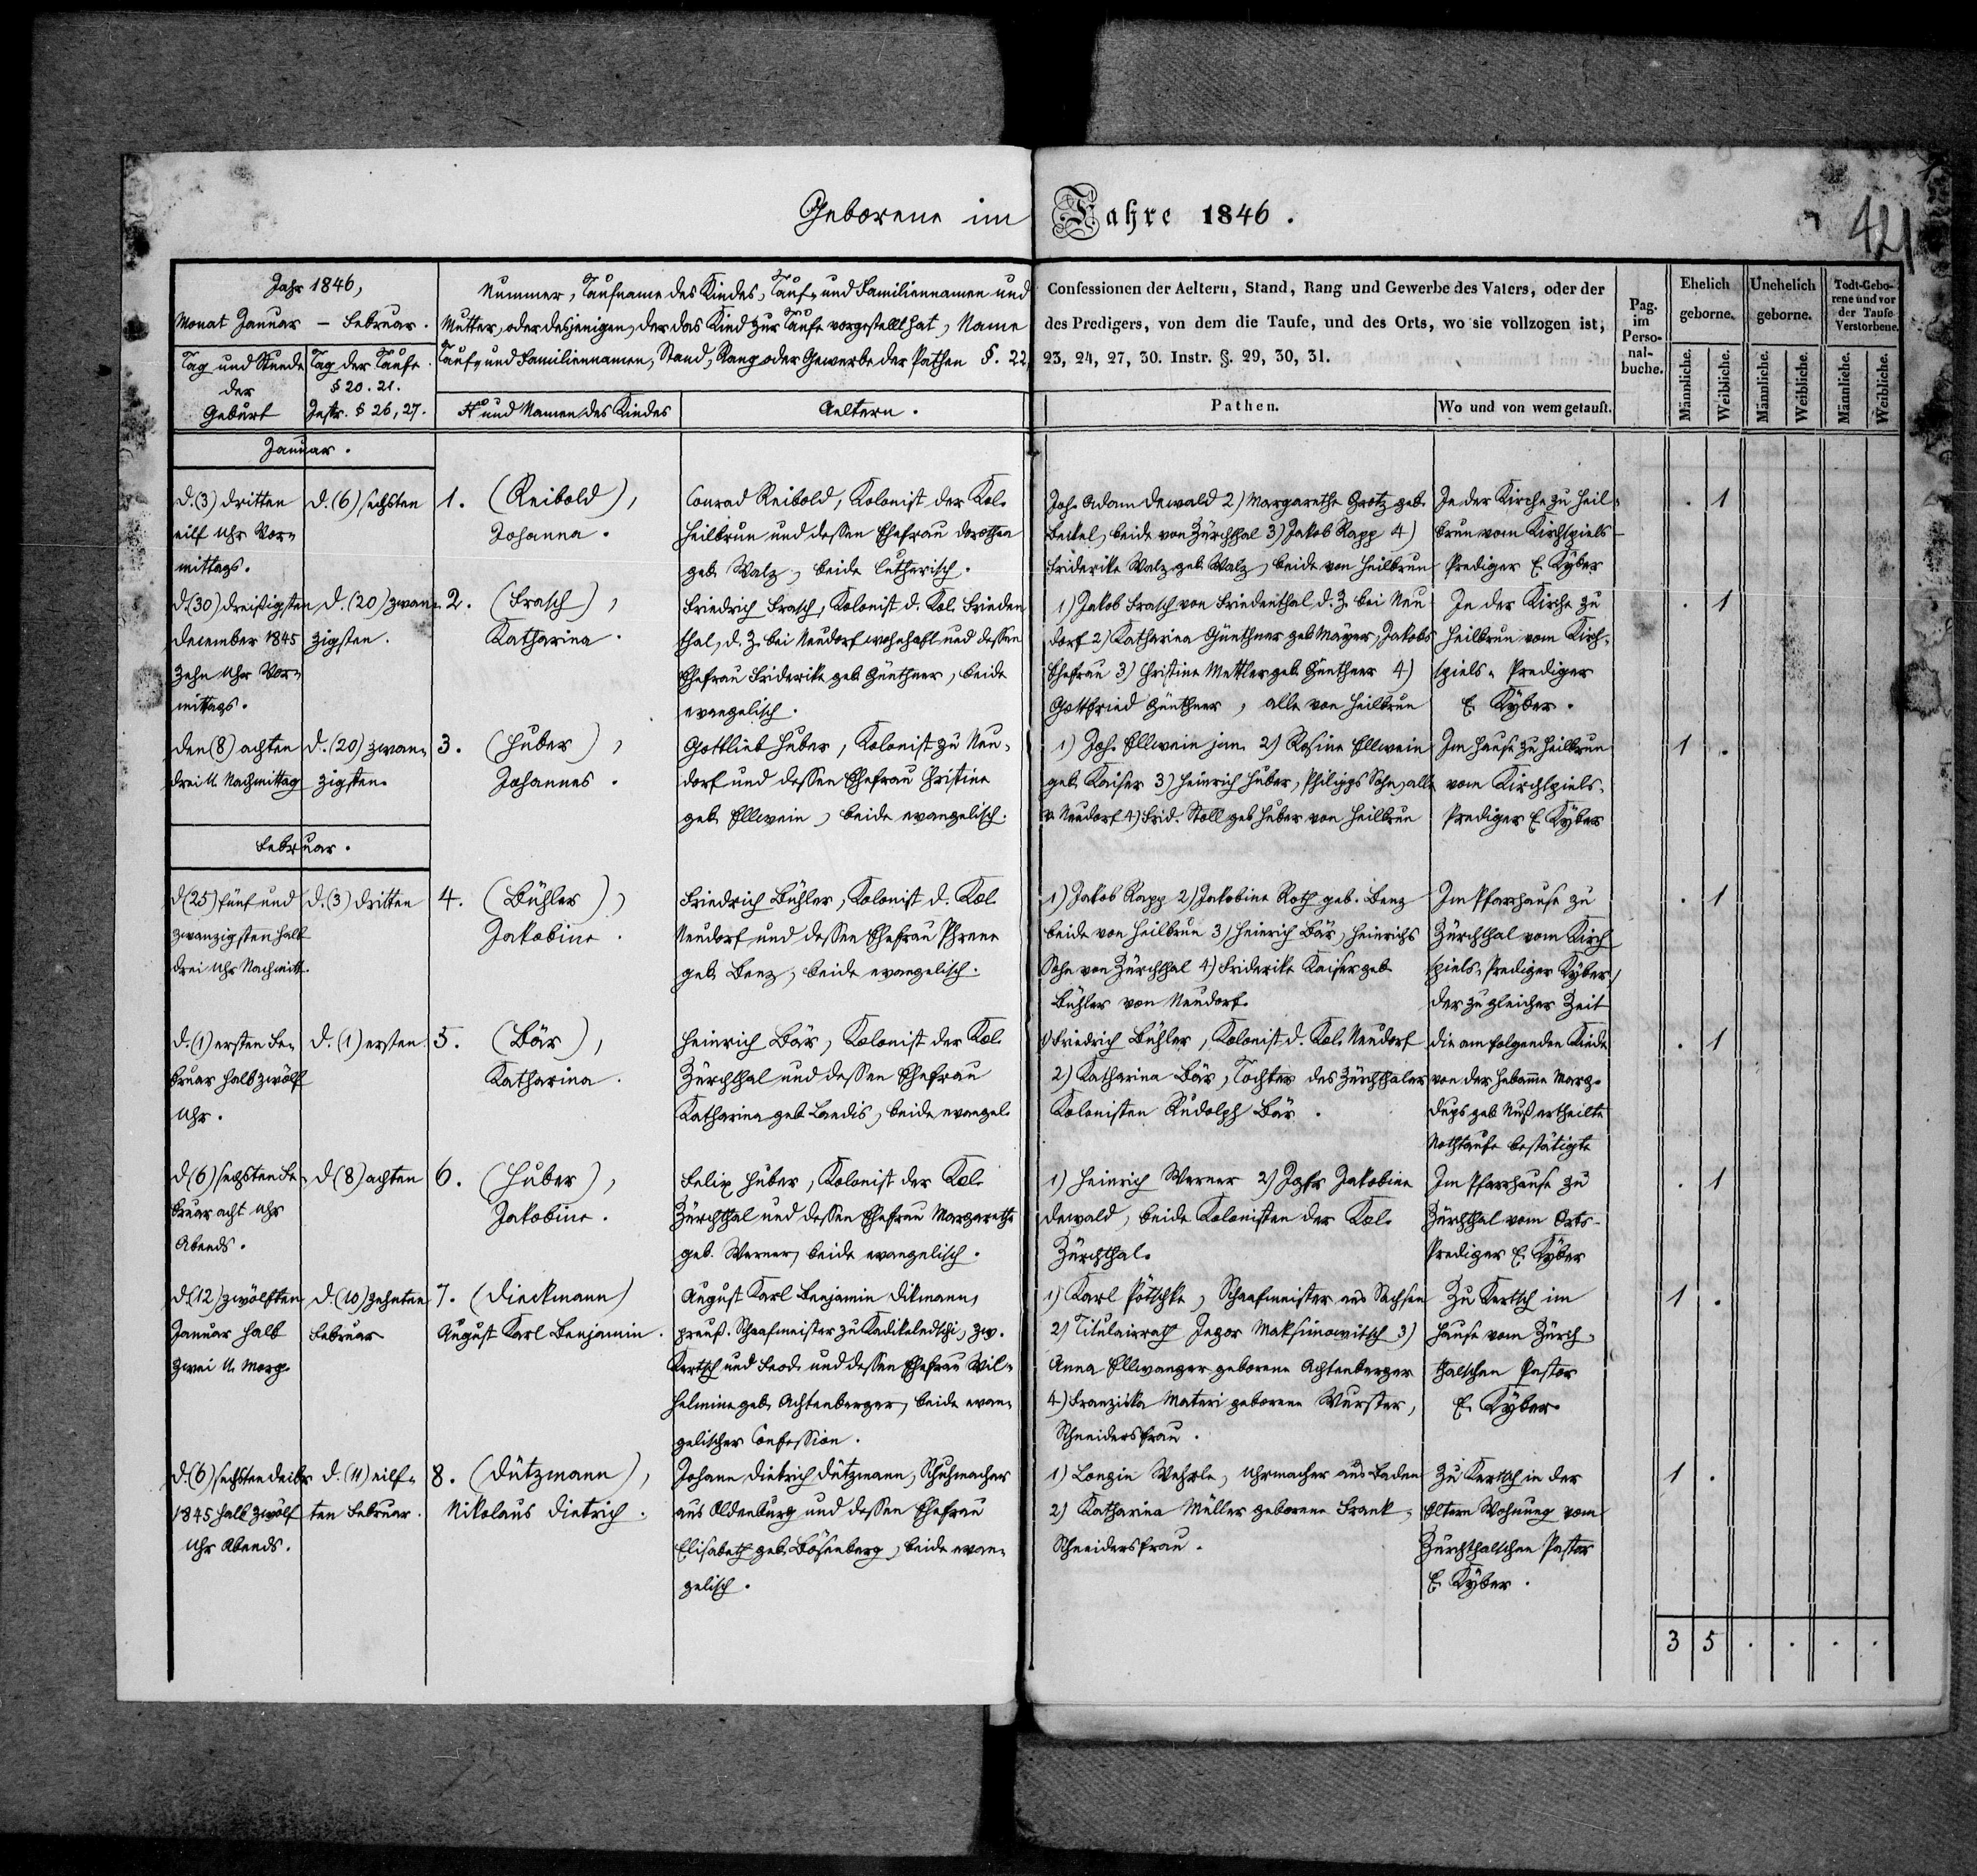 Geborene im Jahre 1846.
421
Jahr 1846,
Monat Januar – Februar.
Tag und Stunde der Geburt
Tag der Taufe § 20. 21. Instr. § 26, 27.
Nummer, Taufname des Kindes, Tauf- und Familiennamen und
Mutter, oder desjenigen, der das Kind zur Taufe vorgestellt hat, Name
Tauf- und Familiennamen, Stand, Rang oder Gewerbe der Pathen §. 22,
No und Namen des Kindes
Aeltern.
Confessionen der Aeltern, Stand, Rang und Gewerbe des Vaters, oder der
des Predigers, von dem die Taufe, und des Orts, wo sie vollzogen ist;
23, 24, 27, 30. Instr. §. 29, 30, 31.
Pathen.
Wo und von wem getauft.
Pag. im Perso-nal-buche.
Ehelich geborne.
Unehelich geborne.
Todt-Gebo-rene und vor der Taufe Verstorbene.
Männliche. Weibliche. Männliche. Weibliche. Männliche. Weibliche.
Januar.
d. (3) dritten
eilf Uhr Vor-
mittags.
d. (6) sechsten
1. (Reibold),
Johanna.
Conrad Reibold, Kolonist der Kol.
Heilbrun und dessen Ehefrau Dorothea
geb. Walz, beide lutherisch.
Joh. Adam Dewald 2) Margarethe Grotz geb.
Beikel, beide von Zürchthal 3) Jakob Rapp 4)
Friderike Walz geb. Walz, beide von Heilbrun
In der Kirche zu Heil-
brun vom Kirchspiels-
Prediger E. Kyber
. 1
d. (30) dreißigsten
December 1845
zehn Uhr Vor-
mittags.
d. (20) zwan-
zigsten.
2. (Frasch),
Katharina.
Friedrich Frasch, Kolonist d. Kol. Frieden
thal, d. Z. bei Neudorf wohnhaft und dessen
Ehefrau Friderike geb. Günthner, beide
evangelisch.
1) Jakob Frasch von Friedenthal d. Z. bei Neu
dorf 2) Katharina Günthner geb Mayer, Jakobs
Ehefrau 3) Christine Mettler geb. Günthner 4)
Gottfried Günthner, alle von Heilbrun
In der Kirche zu
Heilbrun vom Kirch-
spiels-Prediger
E. Kyber.
. 1
den (8) achten
drei U. Nachmittag
d. (20) zwan-
zigsten.
3. (Huber),
Johannes.
Gottlieb Huber, Kolonist zu Neu-
dorf und dessen Ehefrau Christine
geb. Ellwein, beide evangelisch.
1) Joh. Ellwein jun. 2) Rosine Ellwein
geb. Kaiser 3) Heinrich Huber, Philipps Sohn, alle
v. Neudorf 4) Frid. Stoll geb Huber von Heilbrun
Im Hause zu Heilbrun
vom Kirchspiels-
Prediger E. Kyber
1 .
Februar.
d (25) fünf und
zwanzigsten halb
drei Uhr Nachmitt.
d. (3) dritten
4. (Bühler),
Jakobine.
Friedrich Bühler, Kolonist d. Kol.
Neudorf und dessen Ehefrau Phrene
geb. Benz, beide evangelisch.
1) Jakob Rapp 2) Jakobine Roth geb. Benz
beide von Heilbrun 3) Heinrich Bär, Heinrichs
Sohn von Zürchthal 4) Friderike Kaiser geb.
Bühler von Neudorf.
Im Pfarrhause zu
Zürchthal vom Kirch
spiels-Prediger Kyber,
der zu gleicher Zeit
. 1
d. (1) ersten Fe-
bruar halb zwölf
Uhr.
d. (1) ersten.
5. (Bär),
Katharina.
Heinrich Bär, Kolonist der Kol.
Zürchthal und dessen Ehefrau
Katharina geb. Landis, beide evangel.
1) Friedrich Bühler, Kolonist d. Kol. Neudorf
2) Katharina Bär, Tochter des Zürchthaler
Kolonisten Rudolph Bär.
die am folgenden Kinde
von der Hebamme Marg.
Dups geb. Nuß ertheilte
Nothtaufe bestätigte
. 1
d (6) sechsten Fe-
bruar acht Uhr
Abends.
d (8) achten
6. (Huber),
Jakobine.
Felix Huber, Kolonist der Kol.
Zürchthal und dessen Ehefrau Margarethe
geb. Werner, beide evangelisch.
1) Heinrich Werner 2) Jgfr Jakobine
Dewald, beide Kolonisten der Kol.
Zürchthal.
Im Pfarrhause zu
Zürchthal vom Orts-
Prediger E. Kyber
. 1
d. (12) zwölften
Januar halb
zwei U. Morg.
d. (10) zehnten
Februar
7. (Dieckmann)
August Karl Benjamin.
August Karl Benjamin Dikmann,
preuß. Schaafmeister zu Kadikeledschi, zw.
Kertsch und Feod. und dessen Ehefrau Wil-
helmine geb. Achtenberger, beide evan-
gelischer Confession.
1) Karl Pötschke, Schaafmeister aus Sachsen
2) Titulairrath Jegor Maksimowitsch 3)
Anna Ellwanger geborene Achtenberger
4) Franziska Materi geborene Wurster,
Schneidersfrau.
Zu Kertsch im
Hause vom Zürch-
thalschen Pastor
E. Kyber.
1 .
d. (6) sechsten Decbr
1845 halb zwölf
Uhr Abends.
d. (11) eilf-
ten Februar.
8. (Dützmann),
Nikolaus Dietrich.
Johann Dietrich Dützmann, Schuhmacher
aus Oldenburg und dessen Ehefrau
Elisabeth geb. Bösenberg, beide evan-
gelisch.
1) Longin Wehrle, Uhrmacher aus Baden
2) Katharina Müller geborene Frank,
Schneidersfrau.
Zu Kertsch in der
Eltern Wohnung vom
Zürchthalschen Pastor
E. Kyber.
1 .
3 5 . . . .